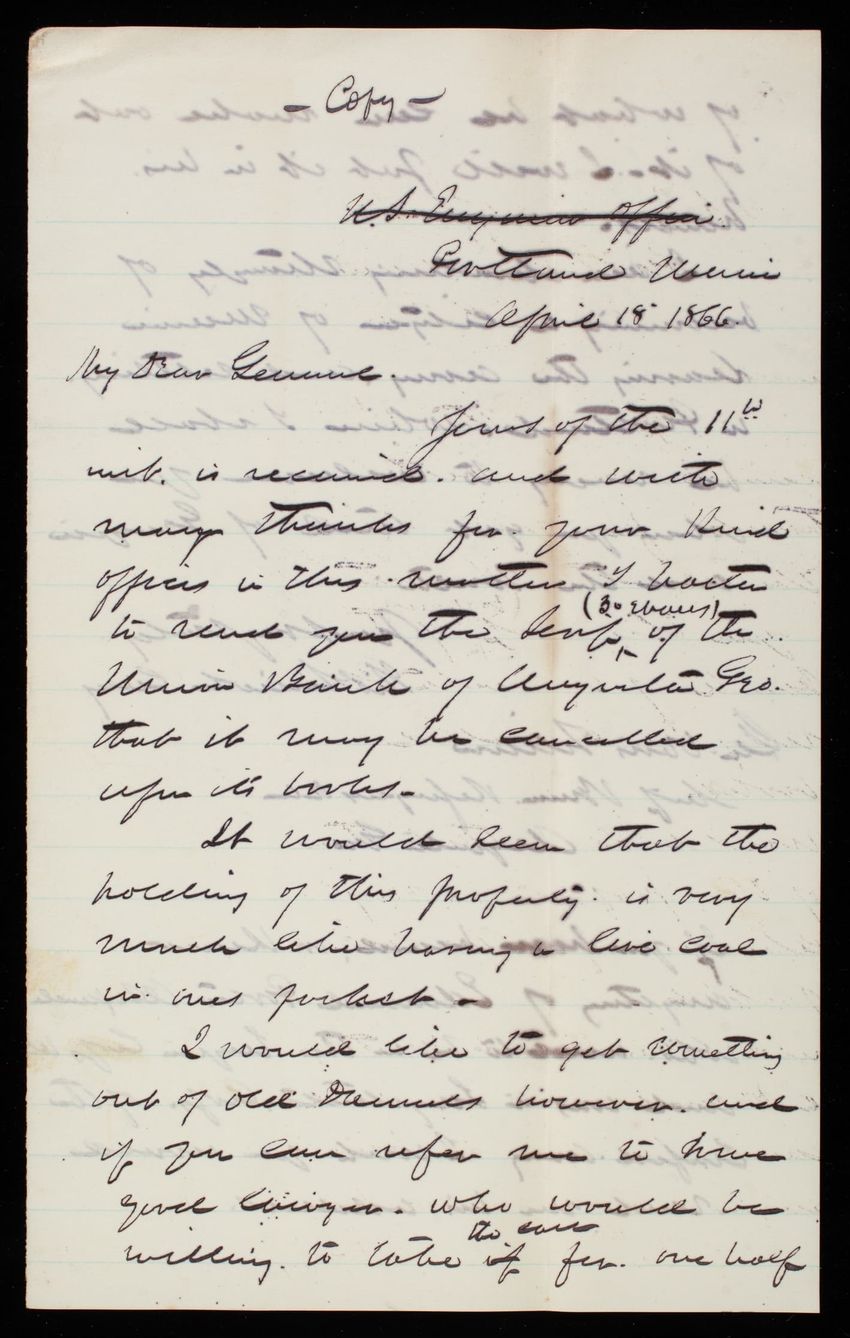 - Copy -
U.S. Engineer Office
Portland Maine
April 18 1866.
My Dear General.
Yours of the 11th
inst. is received. and with
many thanks for your kind
offices in this matter I hasten
(30 shares)
to send you the Scrip, of the
Union Bank of Augusta Geo.
that it may be cancelled
upon its books -
It would seem that the
holding of this property. is very
much like having a live coal
in ones pocket -
I would like to get something
out of old however. and
if you can refer me to some
good lawyer. who would be
the case
willing. to take it for. one half